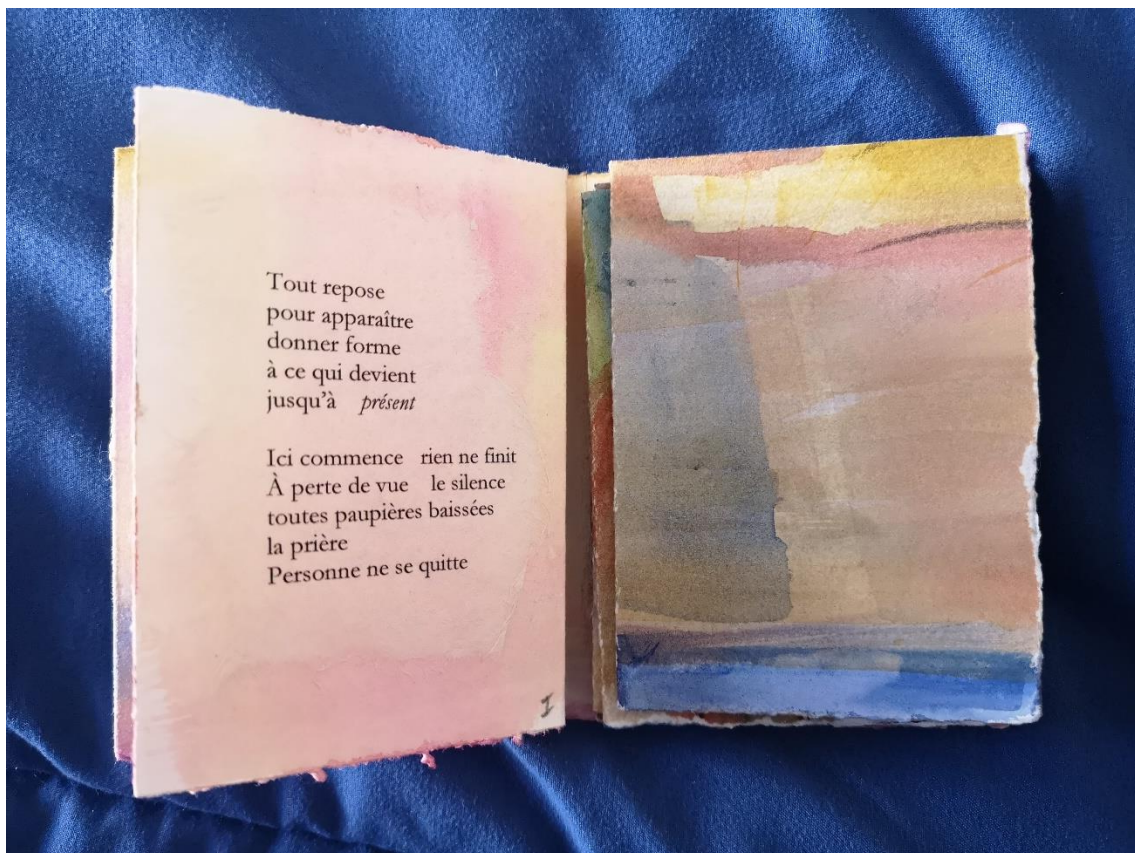 Tout repose
pour apparaître
donner forme
à ce qui devient
jusqu'à présent
Ici commence rien ne finit
À perte de vue le silence
toutes paupières baissées
la prière
Personne ne se quitte
I